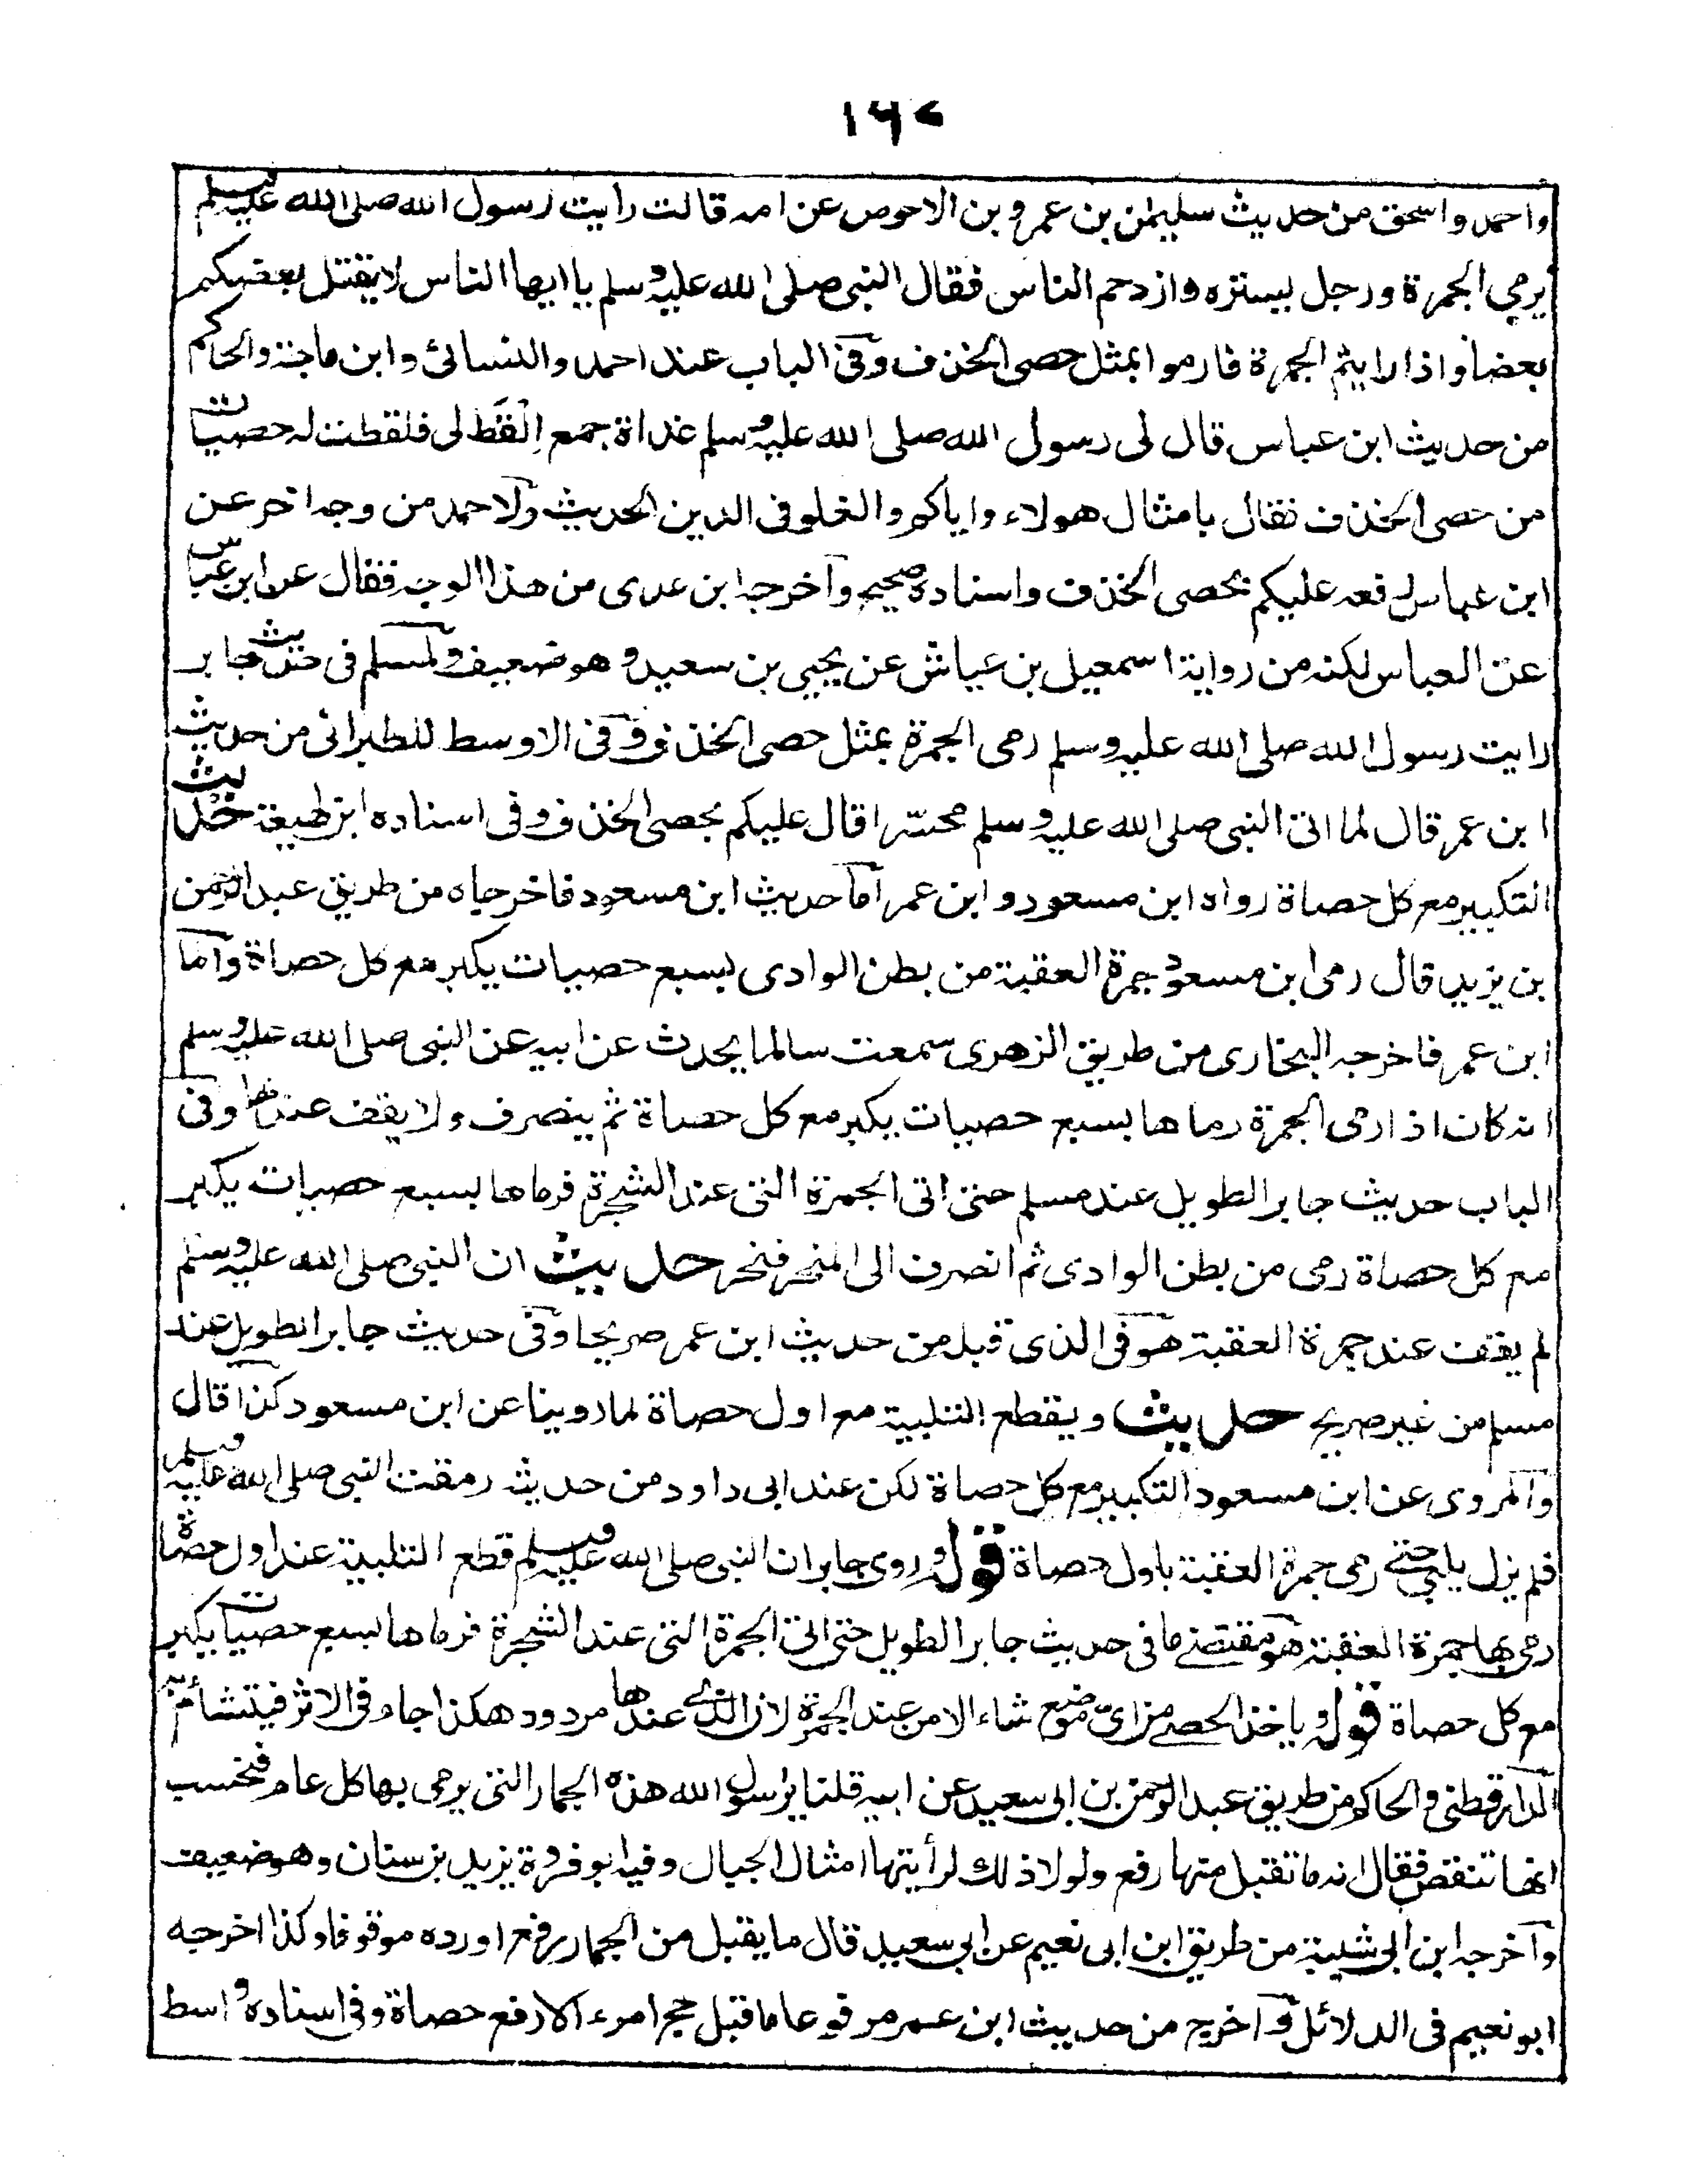 ١٦٧
واحمد واسحق من حديث سليمٰن بن عمرو بن الاحوص عن امه قالت رايت رسول الله صلى الله عليه وسلم
يرمي الجمرة ورجل يستره وازدحم الناس فقال النبي صلى الله عليه وسلم يا ايها الناس لا يقتل بعضكم
بعضا واذا رايتم الجمرة فارموا بمثل حصى الخذف وفي الباب عند احمد والنسائي وابن ماجة والحاكم
من حديث ابن عباس قال لى رسول الله صلى الله عليه وسلم غداة جمع اِلْقَط لى فلقطت له حصيات
من حصى الخذف فقال بامثال هولاء واياكم والغلو فى الدين الحديث ولاحمد من وجه اخر عن
ابن عباس رفعه عليكم بحصى الخذف واسناده صحيح وآخرجه ابن عدى من هذا الوجه فقال عن ابن عباس
عن العباس لكنه من رواية اسمعيل بن عياش عن يحيى بن سعيد وهو ضعيف ولمسلم فى حديث جابر
رايت رسول الله صلى الله عليه وسلم رمى الجمرة بمثل حصى الخذف وفى الاوسط للطبرانى من حديث
ابن عمر قال لما اتى النبى صلى الله عليه وسلم محسّرا قال عليكم بحصى الخذف وفى اسناده ابن لهيعة حديث
التكبير مع كل حصاة رواه ابن مسعود وابن عمر آما حديث ابن مسعود فاخرجاه من طريق عبد الرحمن
بن يزيد قال رمى ابن مسعود جمرة العقبة من بطن الوادى بسبع حصيات يكبر مع كل حصاة وآما
ابن عمر فاخرجه البخارى من طريق الزهرى سمعت سالما يحدث عن ابيه عن النبى صلى الله عليه وسلم
انه كان اذا رمى الجمرة رماها بسبع حصيات يكبر مع كل حصاة ثم ينصرف ولا يقف عندها وفى
الباب حديث جابر الطويل عند مسلم حتى اتى الجمرة التى عند الشجرة فرماها بسبع حصيات يكبر
مع كل حصاة رمى من بطن الوادى ثم انصرف الى المنحر فنحر حديث ان النبى صلى الله عليه وسلم
لم يقف عند جمرة العقبة هو فى الذى قبله من حديث ابن عمر صريحا وفى حديث جابر الطويل عند
مسلم من غير صريح حديث ويقطع التلبية مع اول حصاة لما روينا عن ابن مسعود كذا قال
والمروى عن ابن مسعود التكبير مع كل حصاة لكن عند ابى داود من حديثه رمقت النبى صلى الله عليه وسلم
فلم يزل يلبى حتى رمى جمرة العقبة باول حصاة قوله وروى جابر ان النبى صلى الله عليه وسلم قطع التلبية عند اول حصاة
رمى بها جمرة العقبة هو مقتضى ما فى حديث جابر الطويل حتى اتى الجمرة التى عند الشجرة فرماها بسبع حصيات يكبر
مع كل حصاة قوله وياخذ الحصى من اىّ موضع شاء الا من عند الجمرة لان الذى عندها مردود هكذا جاء فى الاثر فيتشأم به
الدارقطنى والحاكم من طريق عبد الرحمن بن ابى سعيد عن ابيه قلنا يرسول الله هذه الجمار التى يرمى بها كل عام فنحسب
انها تنقص فقال انه ما تقبل منها رفع ولولا ذلك لرأيتها امثال الجبال وفيه ابو فروة يزيد بن سنان وهو ضعيف
وآخرجه ابن ابى شيبة من طريق ابن ابى نعيم عن ابى سعيد قال ما يقبل من الجمار رفع اورده موقوفا وكذا اخرجه
ابو نعيم فى الدلائل وآخرج من حديث ابن عمر مرفوعا ما قبل حج امرء الا رفع حصاة وفى اسناده واسط